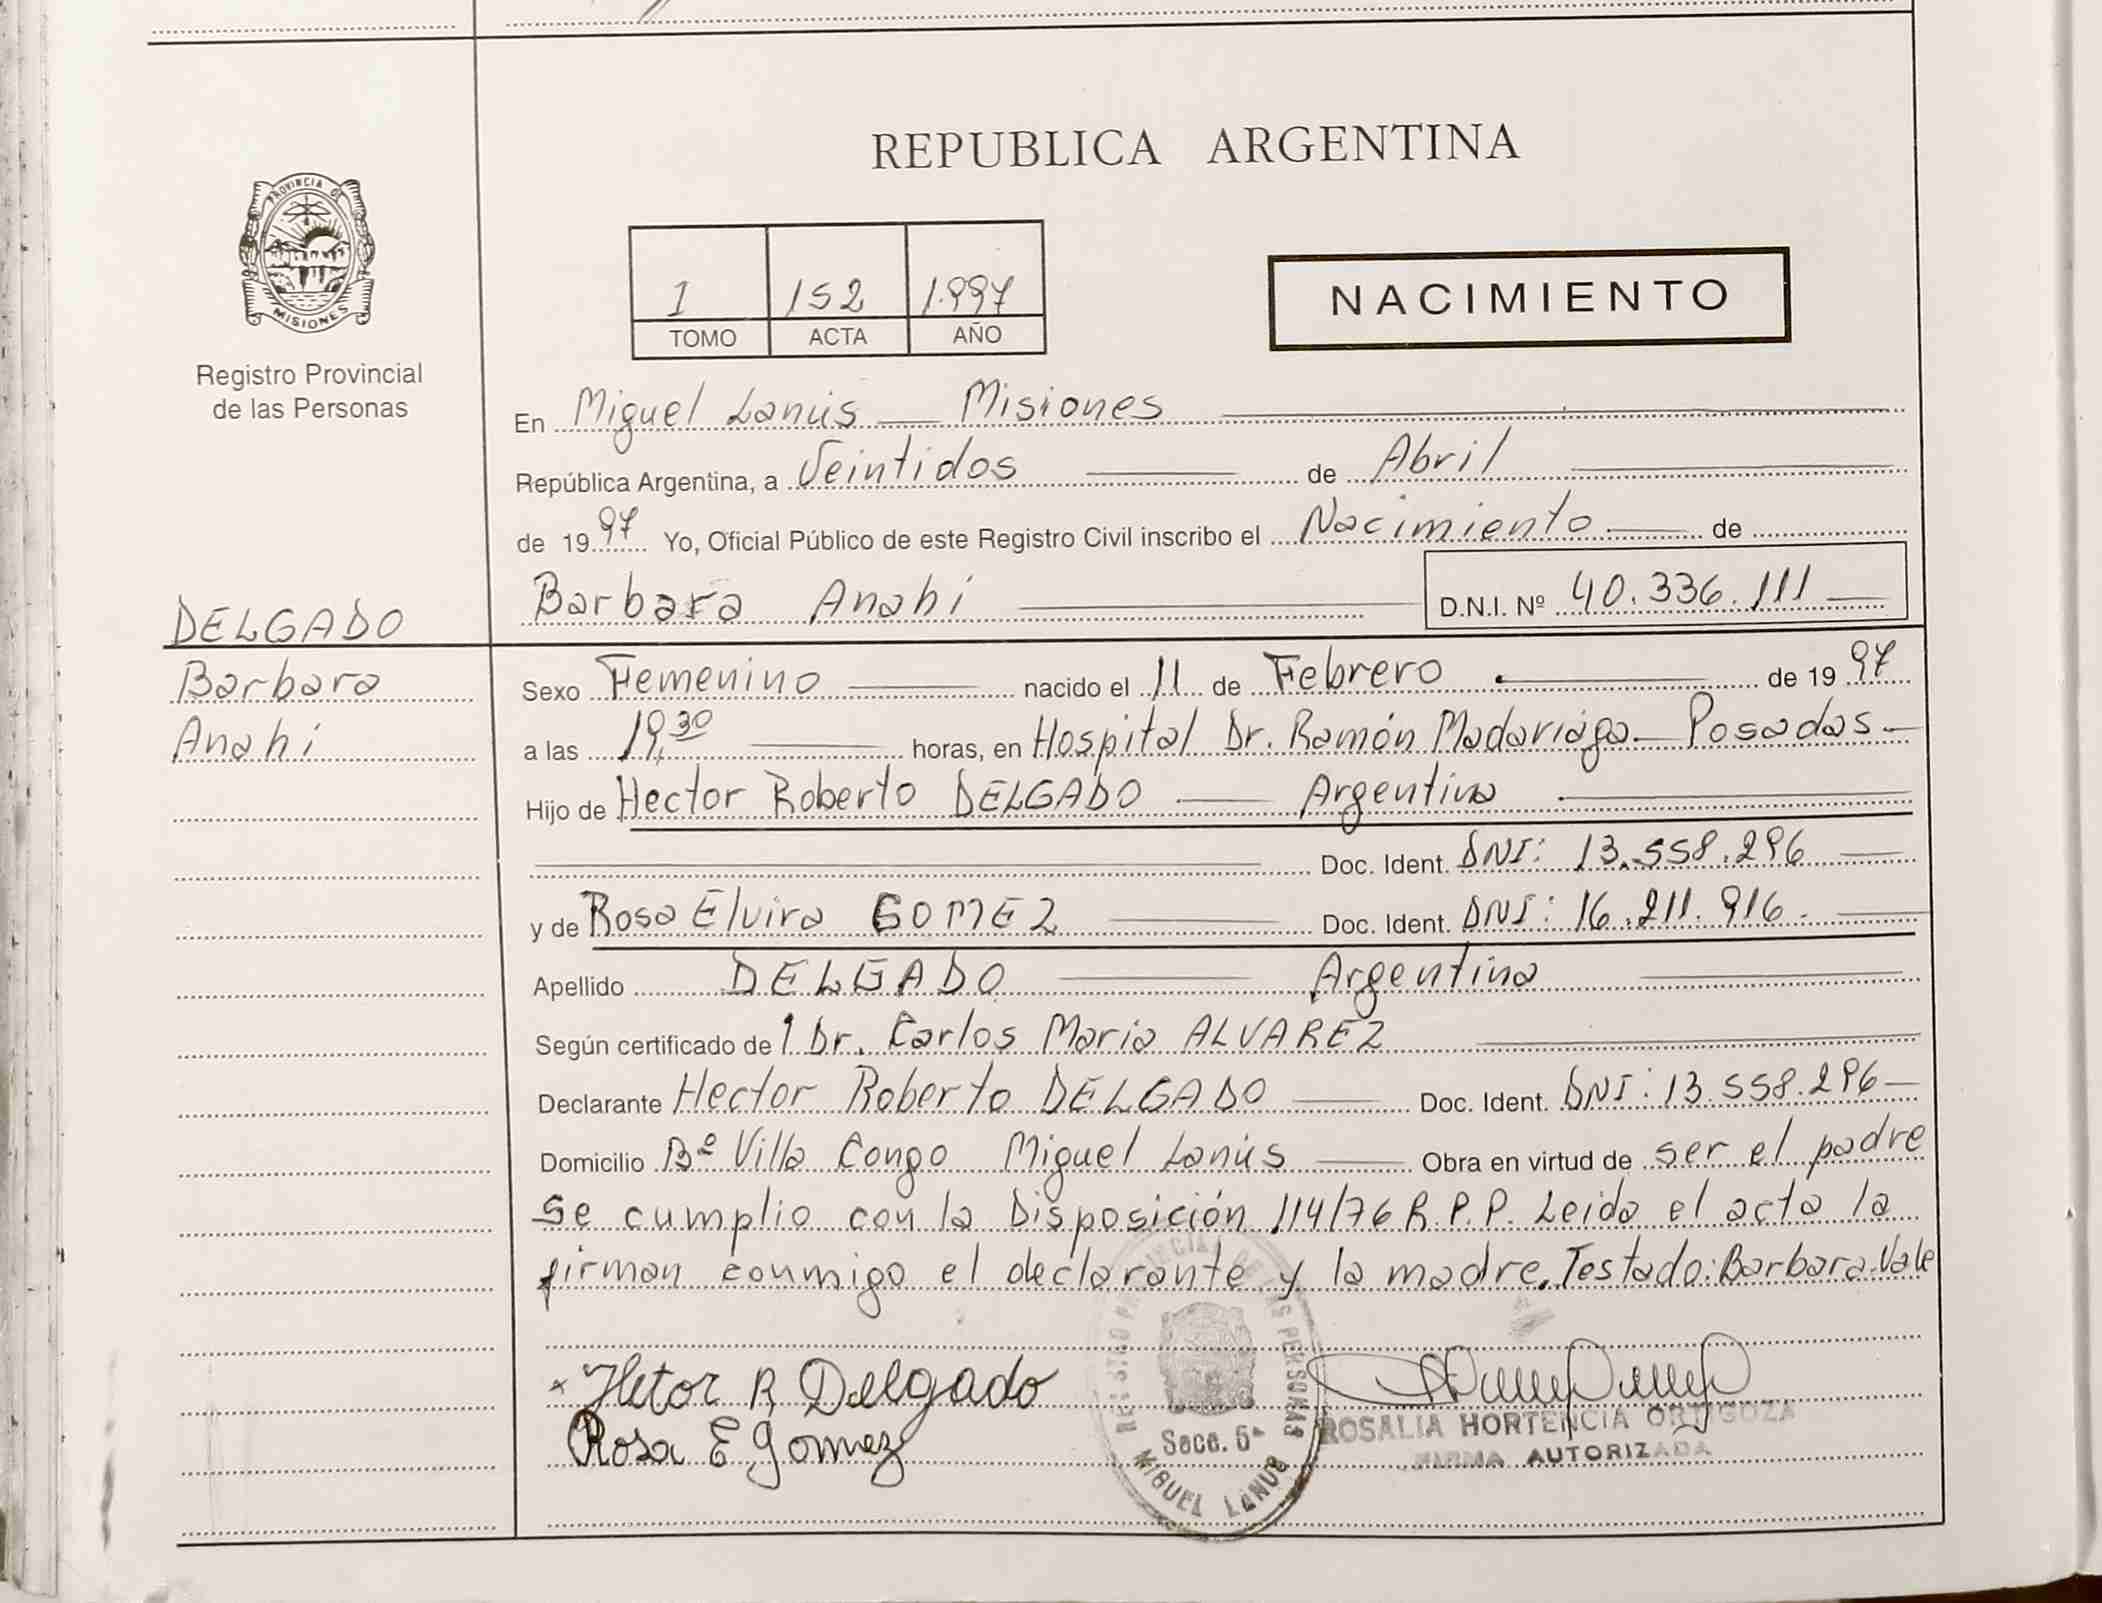 REPUBLICA ARGENTINA
PROVINCIA DE
MISIONES
Registro Provincial
de las Personas
1 152 1.997
TOMO ACTA AÑO
NACIMIENTO
En Miguel Lanús — Misiones
República Argentina, a Veintidos de Abril
de 1997 Yo, Oficial Público de este Registro Civil inscribo el Nacimiento de
Barbara Anahi D.N.I. Nº 40.336.111
DELGADO
Barbara
Anahi
Sexo Femenino nacido el 11 de Febrero de 1997
a las 19,30 horas, en Hospital Dr. Ramón Madariaga - Posadas -
Hijo de Hector Roberto DELGADO — Argentino
Doc. Ident. DNI: 13.558.296
y de Rosa Elvira GOMEZ Doc. Ident. DNI: 16.211.916.
Apellido DELGADO — Argentina
Según certificado del Dr. Carlos Maria ALVAREZ
Declarante Hector Roberto DELGADO Doc. Ident. DNI: 13.558.296
Domicilio Bº Villa Congo Miguel Lanús Obra en virtud de ser el padre
Se cumplio con la Disposición 114/76 R.P.P. Leida el acta la
firman conmigo el declarante y la madre. Testado: Barbara. Vale
x Hetor R Delgado
Rosa E Gomez
REGISTRO PROVINCIAL DE LAS PERSONAS
Secc. 5ª
MIGUEL LANUS
ROSALIA HORTENCIA ORTIGOZA
FIRMA AUTORIZADA